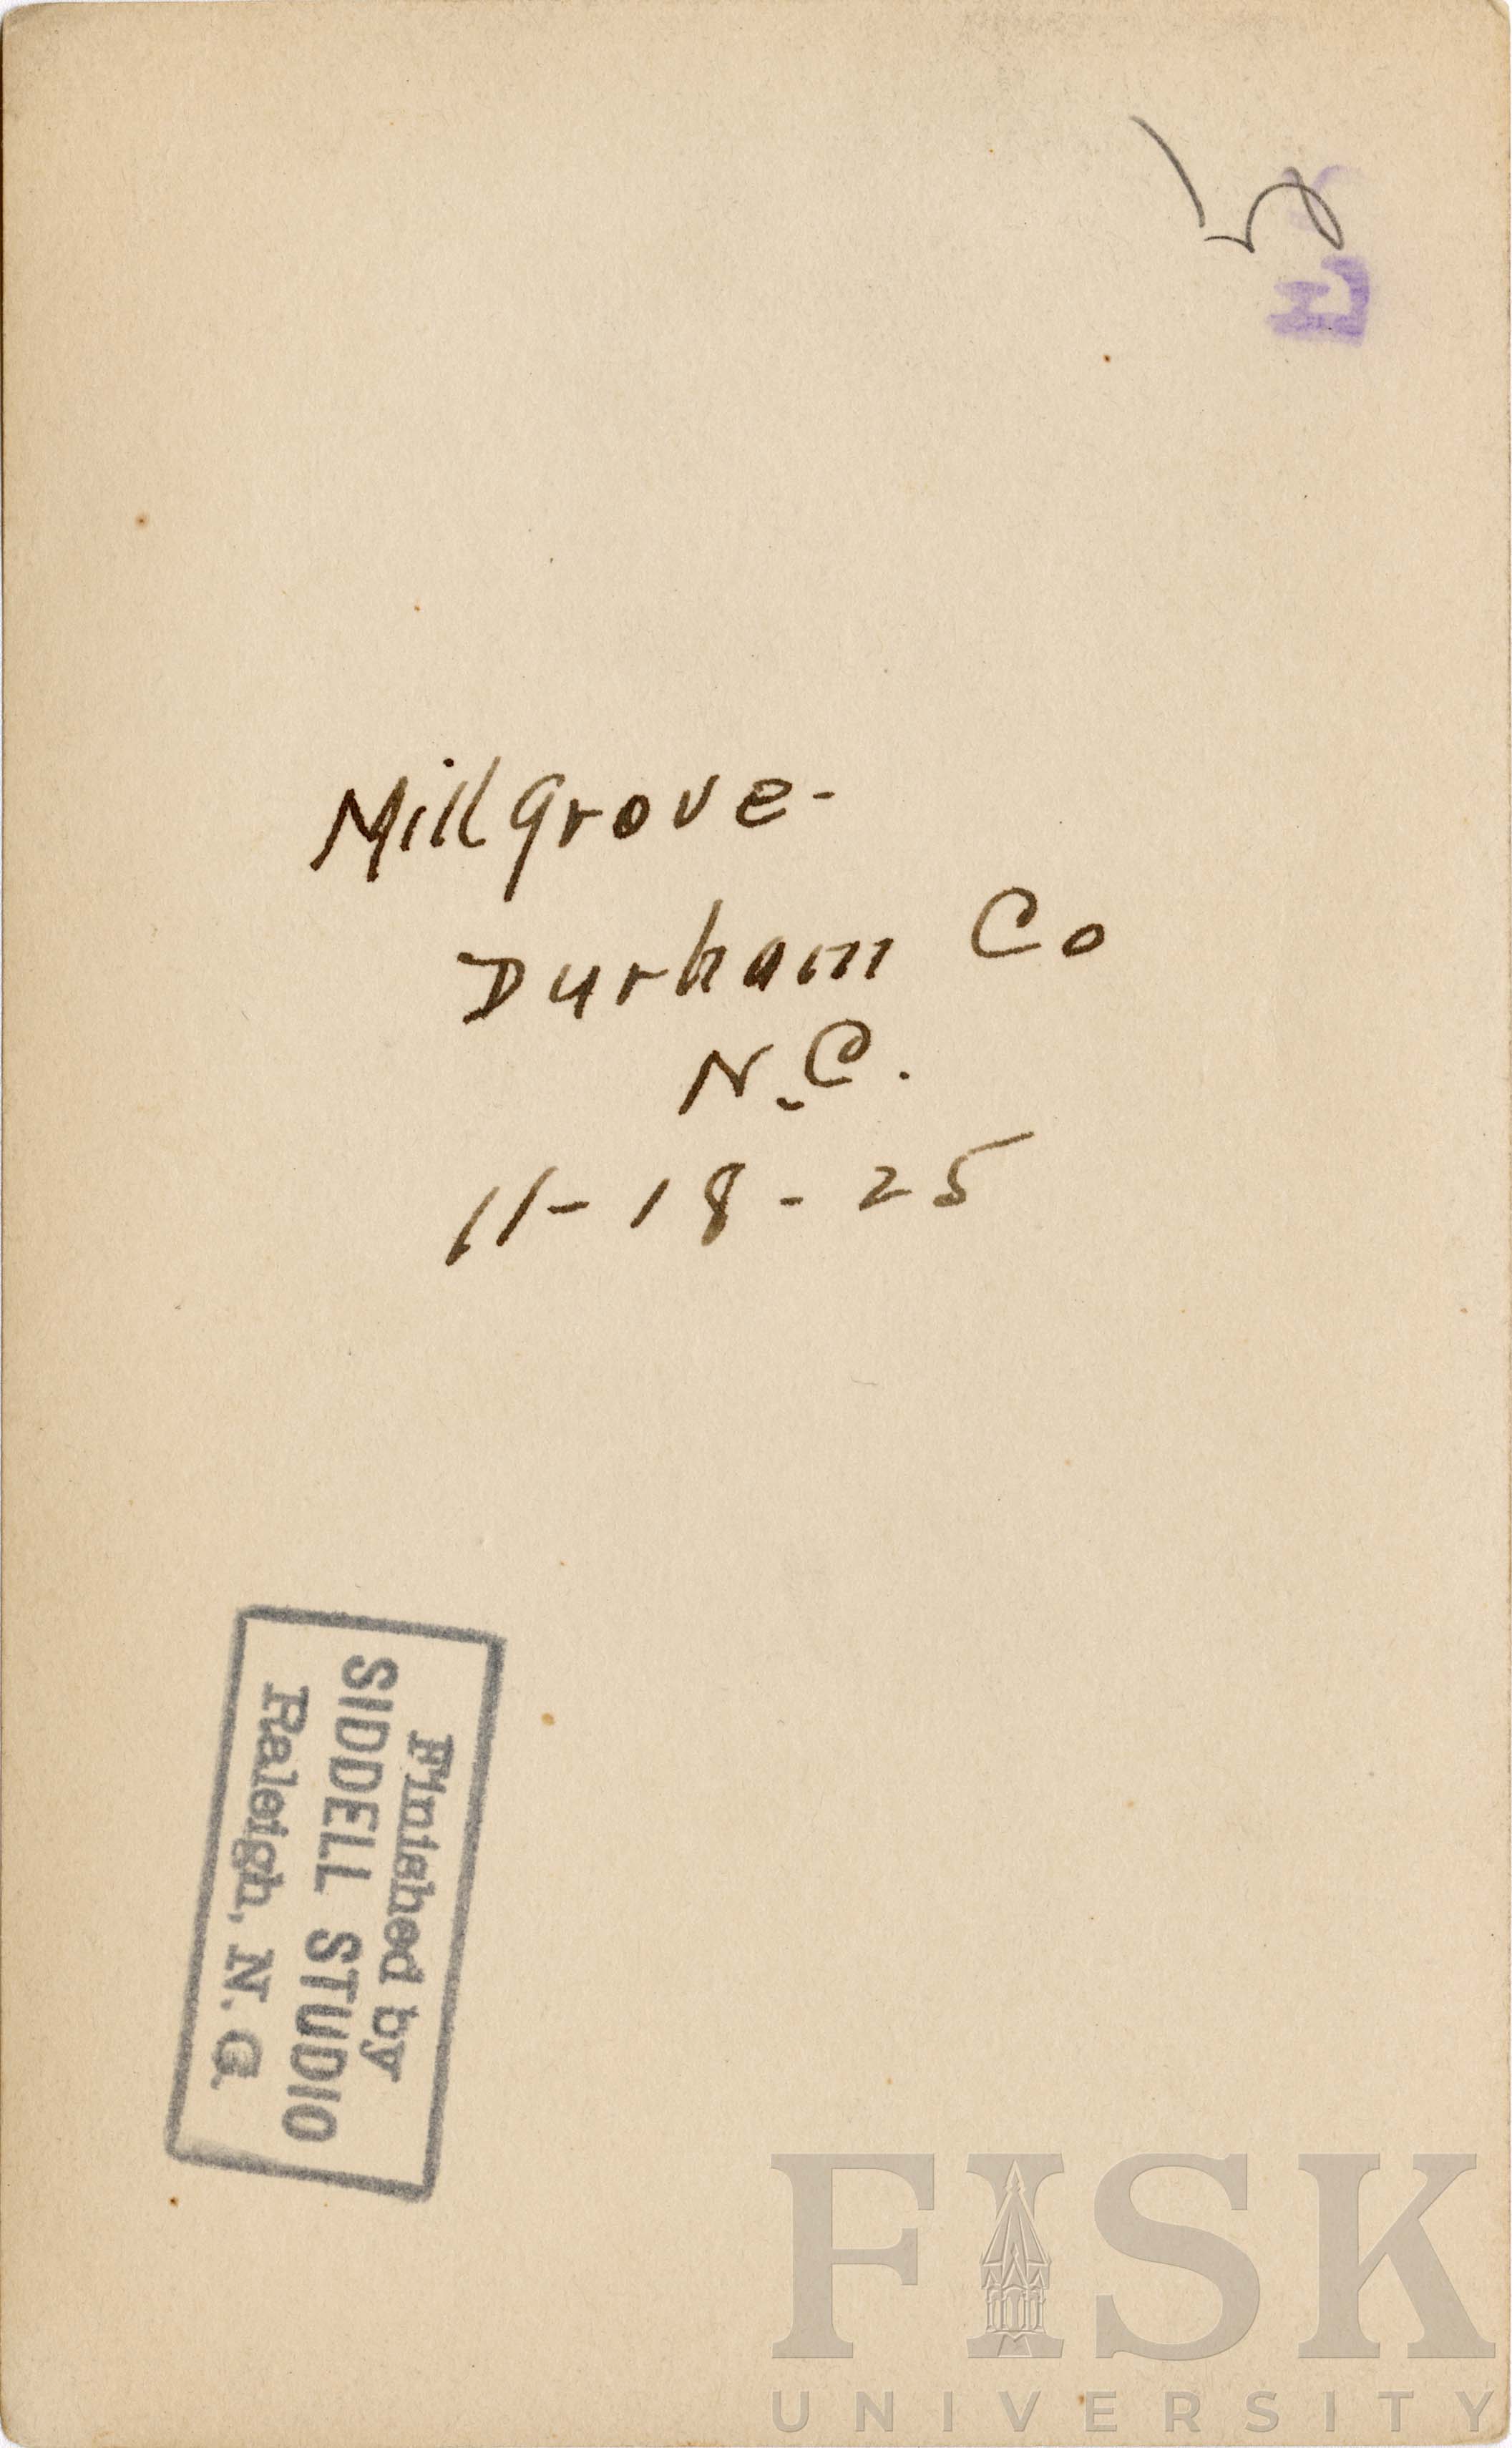 Millgrove-
Durham Co
N.C.
11-18-25
Finished by
SIDDELL STUDIO
Raleigh, N. C.
FISK
UNIVERSITY